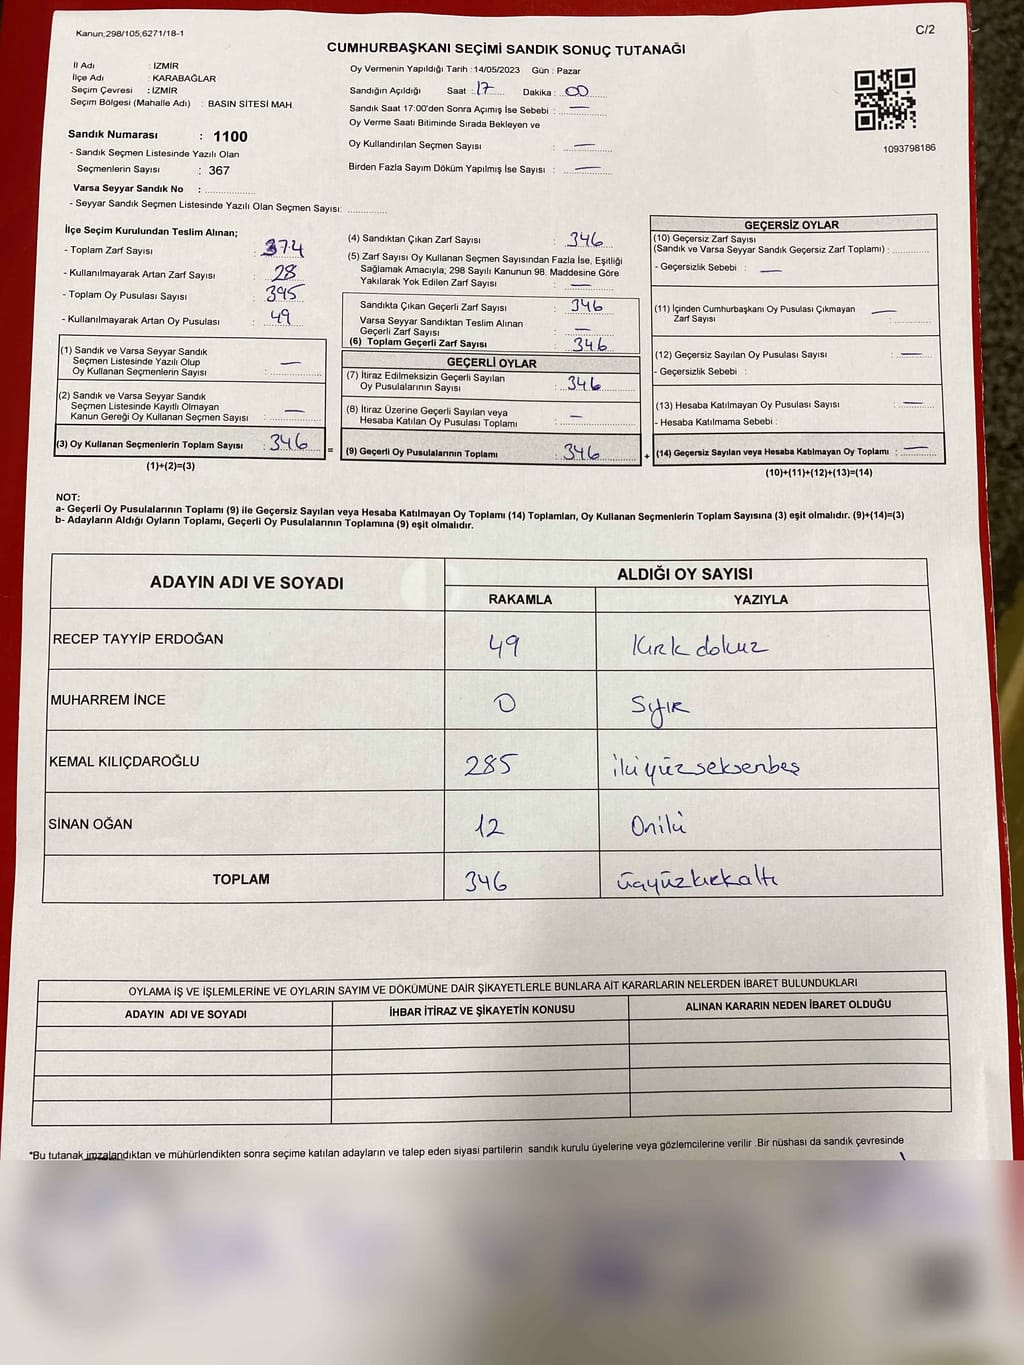 Kanun;298/105;6271/18-1
C/2
CUMHURBAŞKANI SEÇİMİ SANDIK SONUÇ TUTANAĞI
İl Adı : İZMİR
İlçe Adı : KARABAĞLAR
Seçim Çevresi : İZMİR
Seçim Bölgesi (Mahalle Adı) : BASIN SİTESİ MAH.
Sandık Numarası : 1100
- Sandık Seçmen Listesinde Yazılı Olan
Seçmenlerin Sayısı : 367
Varsa Seyyar Sandık No : ................
- Seyyar Sandık Seçmen Listesinde Yazılı Olan Seçmen Sayısı: ............
Oy Vermenin Yapıldığı Tarih : 14/05/2023 Gün : Pazar
Sandığın Açıldığı Saat : 17 Dakika : 00
Sandık Saat 17:00'den Sonra Açımış İse Sebebi : —
Oy Verme Saati Bitiminde Sırada Bekleyen ve
Oy Kullandırılan Seçmen Sayısı : —
Birden Fazla Sayım Döküm Yapılmış İse Sayısı : —
1093798186
İlçe Seçim Kurulundan Teslim Alınan;
- Toplam Zarf Sayısı : 374
- Kullanılmayarak Artan Zarf Sayısı : 28
- Toplam Oy Pusulası Sayısı : 395
- Kullanılmayarak Artan Oy Pusulası : 49
(1) Sandık ve Varsa Seyyar Sandık
Seçmen Listesinde Yazılı Olup
Oy Kullanan Seçmenlerin Sayısı : —
(2) Sandık ve Varsa Seyyar Sandık
Seçmen Listesinde Kayıtlı Olmayan
Kanun Gereği Oy Kullanan Seçmen Sayısı : —
(3) Oy Kullanan Seçmenlerin Toplam Sayısı : 346
(1)+(2)=(3)
=
(4) Sandıktan Çıkan Zarf Sayısı : 346
(5) Zarf Sayısı Oy Kullanan Seçmen Sayısından Fazla İse, Eşitliği
Sağlamak Amacıyla; 298 Sayılı Kanunun 98. Maddesine Göre
Yakılarak Yok Edilen Zarf Sayısı : —
Sandıkta Çıkan Geçerli Zarf Sayısı : 346
Varsa Seyyar Sandıktan Teslim Alınan
Geçerli Zarf Sayısı : —
(6) Toplam Geçerli Zarf Sayısı : 346
GEÇERLİ OYLAR
(7) İtiraz Edilmeksizin Geçerli Sayılan
Oy Pusulalarının Sayısı : 346
(8) İtiraz Üzerine Geçerli Sayılan veya
Hesaba Katılan Oy Pusulası Toplamı : —
(9) Geçerli Oy Pusulalarının Toplamı : 346
+
GEÇERSİZ OYLAR
(10) Geçersiz Zarf Sayısı
(Sandık ve Varsa Seyyar Sandık Geçersiz Zarf Toplamı) : ............
- Geçersizlik Sebebi : —
(11) İçinden Cumhurbaşkanı Oy Pusulası Çıkmayan —
Zarf Sayısı : ............
(12) Geçersiz Sayılan Oy Pusulası Sayısı : —
- Geçersizlik Sebebi :
(13) Hesaba Katılmayan Oy Pusulası Sayısı : —
- Hesaba Katılmama Sebebi :
(14) Geçersiz Sayılan veya Hesaba Katılmayan Oy Toplamı : —
(10)+(11)+(12)+(13)=(14)
NOT:
a- Geçerli Oy Pusulalarının Toplamı (9) ile Geçersiz Sayılan veya Hesaba Katılmayan Oy Toplamı (14) Toplamları, Oy Kullanan Seçmenlerin Toplam Sayısına (3) eşit olmalıdır. (9)+(14)=(3)
b- Adayların Aldığı Oyların Toplamı, Geçerli Oy Pusulalarının Toplamına (9) eşit olmalıdır.
ADAYIN ADI VE SOYADI
ALDIĞI OY SAYISI
RAKAMLA YAZIYLA
RECEP TAYYİP ERDOĞAN 49 Kırk dokuz
MUHARREM İNCE 0 Sıfır
KEMAL KILIÇDAROĞLU 285 ikiyüzseksenbeş
SİNAN OĞAN 12 Oniki
TOPLAM 346 üçyüzkırkaltı
OYLAMA İŞ VE İŞLEMLERİNE VE OYLARIN SAYIM VE DÖKÜMÜNE DAİR ŞİKAYETLERLE BUNLARA AİT KARARLARIN NELERDEN İBARET BULUNDUKLARI
ADAYIN ADI VE SOYADI İHBAR İTİRAZ VE ŞİKAYETİN KONUSU ALINAN KARARIN NEDEN İBARET OLDUĞU
*Bu tutanak imzalandıktan ve mühürlendikten sonra seçime katılan adayların ve talep eden siyasi partilerin sandık kurulu üyelerine veya gözlemcilerine verilir .Bir nüshası da sandık çevresinde